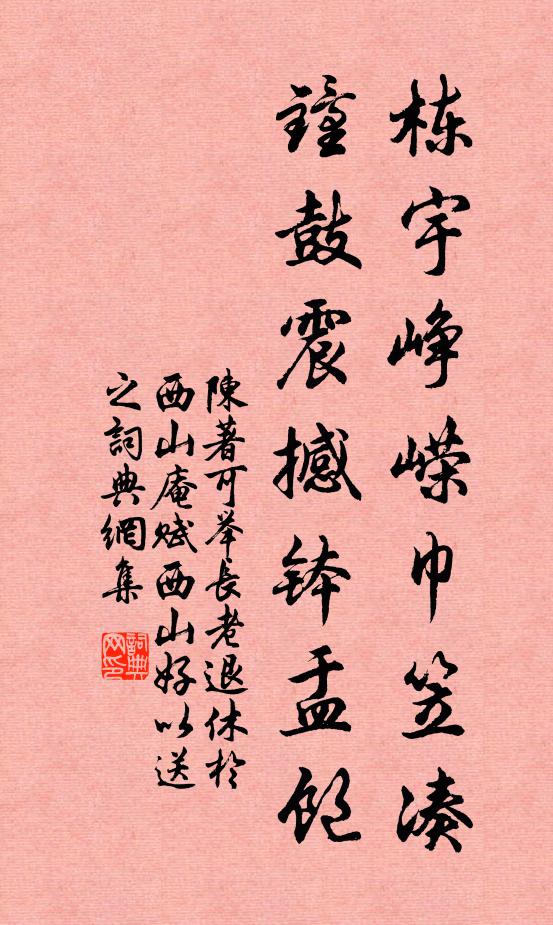 栋宇峥嵘巾笠凑
鐘鼓震撼钵盂飽
陳著可举長老退休於
西山庵赋西山好以送
之詞典網集
詞典網印